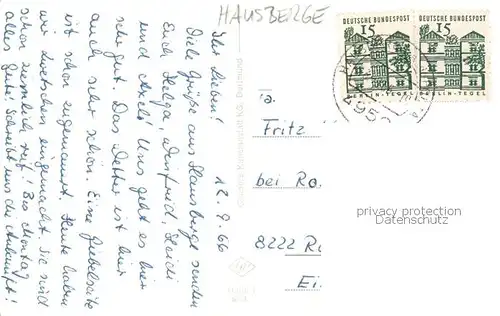 HAUSBERGE
DEUTSCHE BUNDESPOST
15
BERLIN-TEGEL
DEUTSCHE BUNDESPOST
15
BERLIN-TEGEL
495
12. 9. 66
Ihr Lieben!
Viele Grüße aus Hausberge senden
Euch Helga, Winfried, Heidi
und Uns geht es hier
sehr gut. Das Wetter ist hier
auch sehr schön. Eine Giebelseite
ist schon zugemauert. Heute haben
wir Zwetschen eingemacht. Sie sind
schon ziemlich reif! Bis Montag
alles Gute! Schreibt uns die Ankunft!
Fa.
Fritz
bei Ro
8222 Ru
Ei
privacy protection
Datenschutz